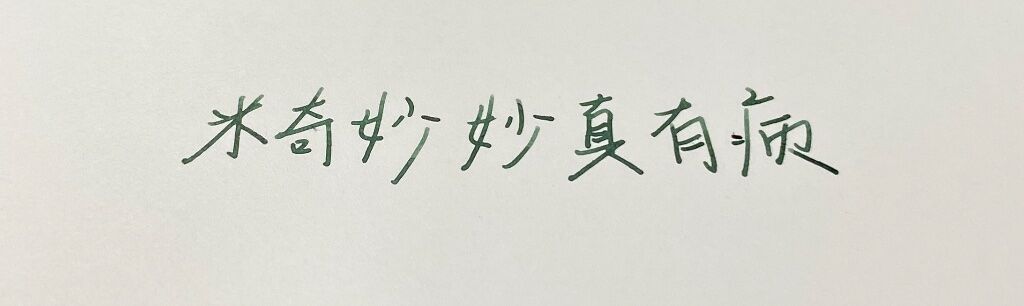 米奇妙妙真有病